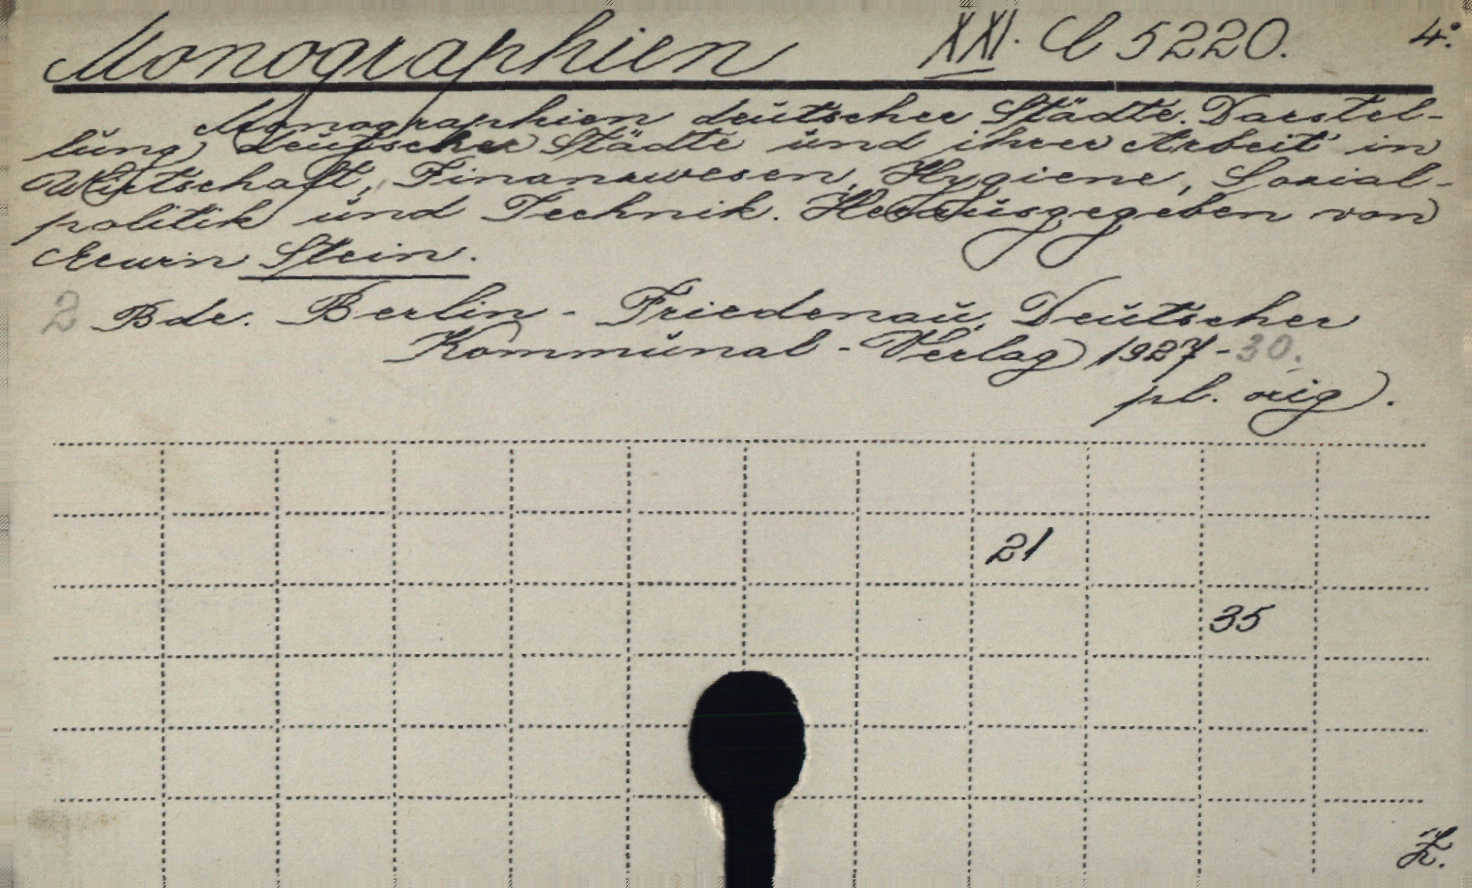 Monographien XXI. C 5220. 4°.
Monographien deutscher Städte. Darstel-
lung deutscher Städte und ihrer Arbeit in
Wirtschaft, Finanzwesen, Hygiene, Sozial-
politik und Technik. Herausgegeben von
Erwin Stein.
2 Bde. Berlin - Friedenau, Deutscher
Kommunal - Verlag 1927-30.
pl. orig.
21
35
Ž.